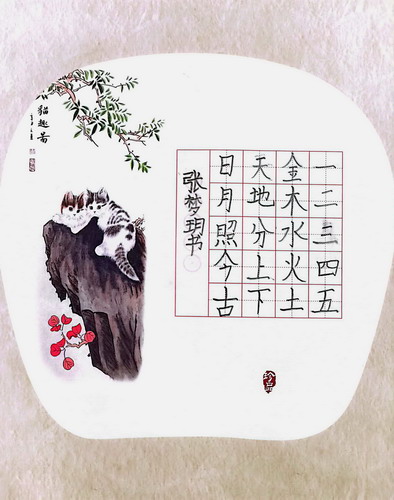 一二三四五
金木水火土
天地分上下
日月照今古
张梦玥书
貓趣圖